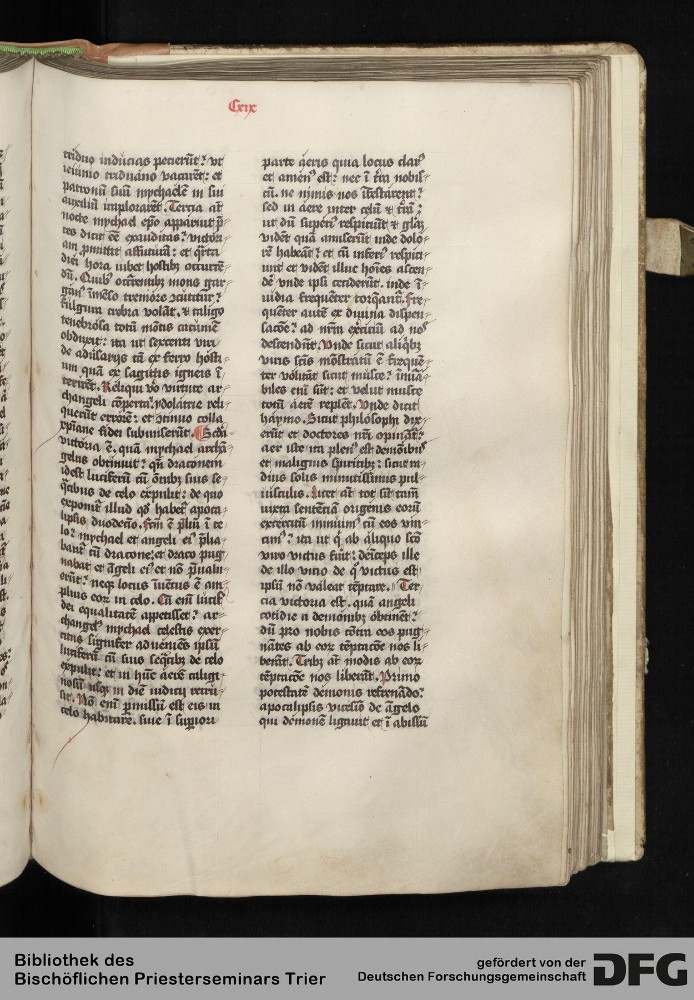 Cxix
triduo inducias petierūt? vt
ieiunio triduano vacarēt: et
patronū suū mychaelē in sui
auxiliū implorarēt. Tercia at̄
nocte mychael ep̄o apparuit p̄-
ces dicit eē exauditas? victori-
am p̄mittit affuturā: et q̄rta
diei hora iubet hostibȝ occurrē-
dū. Quibȝ occ̄rentibȝ mons gar-
gan⁹ īmēso tremore ɔcutitur?
fulgura crebra volāt. ⁊ caligo
tenebrosa totū mōtis cacumē
obduxit: ita ut sexcenti viri
de adūsarijs tā ex ferro hosti-
um quā ex sagittis igneis ī-
terirēt. Reliqui vo virtute ar-
changeli cōperta ydolatrie reli-
querūt errorē: et ɔtinuo colla
xpiane fidei subiūxerūt. Scda
victoria ē. quā mychael archā-
gelus obtinuit? qn̄ draconem
idest luciferū cū om̄ibȝ suis se-
q̄cibus de celo expulit: de quo
exponit̄ illud qd̄ habet̄ apoca-
lipsis duodecīo. Fc̄m ē p̄liū ī ce-
lo? mychael et angeli ei⁹ p̄lia-
banť cū dracone: et draco pug-
nabat et āgeli ei⁹ et nō p̄ualu-
erūt? neqȝ locus īuētus ē am-
plius eoꝝ in celo. Cū enī lucif̄
dei equalitatē appetisset? ar-
changel⁹ mychael celestis exer-
citus signifer adueniēs ip̄sū
luciferū cū suis seq̄cibȝ de celo
expulit: et in hūc aerē caligi-
nosū usqȝ in diē iudicij retru-
sit. Nō enī p̄missū est eis in
celo habitare. siue ī superiori
parte aeris quia locus clar⁹
et amen⁹ est: nec ī t̄ra nobis-
cū. ne nimis nos īfestarent:
sed in aere inter celū ⁊ t̄rā:
ut dū superi⁹ respiciūt ⁊ gl̄aȝ
vidēt quā amiserūt inde dolo-
rē habeāt? et cū inferi⁹ respici-
unt et vidēt illuc hoīes ascen-
dē vnde ip̄si ceciderūt. inde ī-
uidia frequēter torqāntȝ. Fre-
quēter autē ex diuina dispen-
sacōe? ad nr̄m exerciciū ad nos
descendūt. Vnde sicut aliqbȝ
viris scīs mōstratū ē freque-
ter volitāt sicut musce? īnūa-
biles enī sūt: et velut musce
totū aerē replēt. Vnde dicit
haymo. Sicut philosophi dix-
erūt et doctores nr̄i opinātȝ?
aer iste ita plen⁹ est demōibȝ
et malignis spiritibȝ: sicut ra-
dius solis minutissimis pul-
uisculis. Licet at̄ tot sīt tam̄
iuxta sentēciā origenis eorū
exercitū minium⁹ cū eos vin-
cim⁹? ita ut q̄ ab aliquo scō
viro victus fūit: deīceps ille
de illo vicio de q̄ victus est
ip̄sū nō valeat tēptare. Ter-
cia victoria est. quā angeli
cotidie a demonibȝ obtinēt:
dū pro nobis cōtra eos pug-
nātes ab eoꝝ tēptacōe nos li-
berāt. Tribȝ at̄ modis ab eoꝝ
tēptacōe nos liberāt. Primo
potestatē demonis refrenādo?
apocalipsis vicesīo de āgelo
qui demonē ligauit et ī abissū
Bibliothek des
Bischöflichen Priesterseminars Trier
gefördert von der
Deutschen Forschungsgemeinschaft
DFG